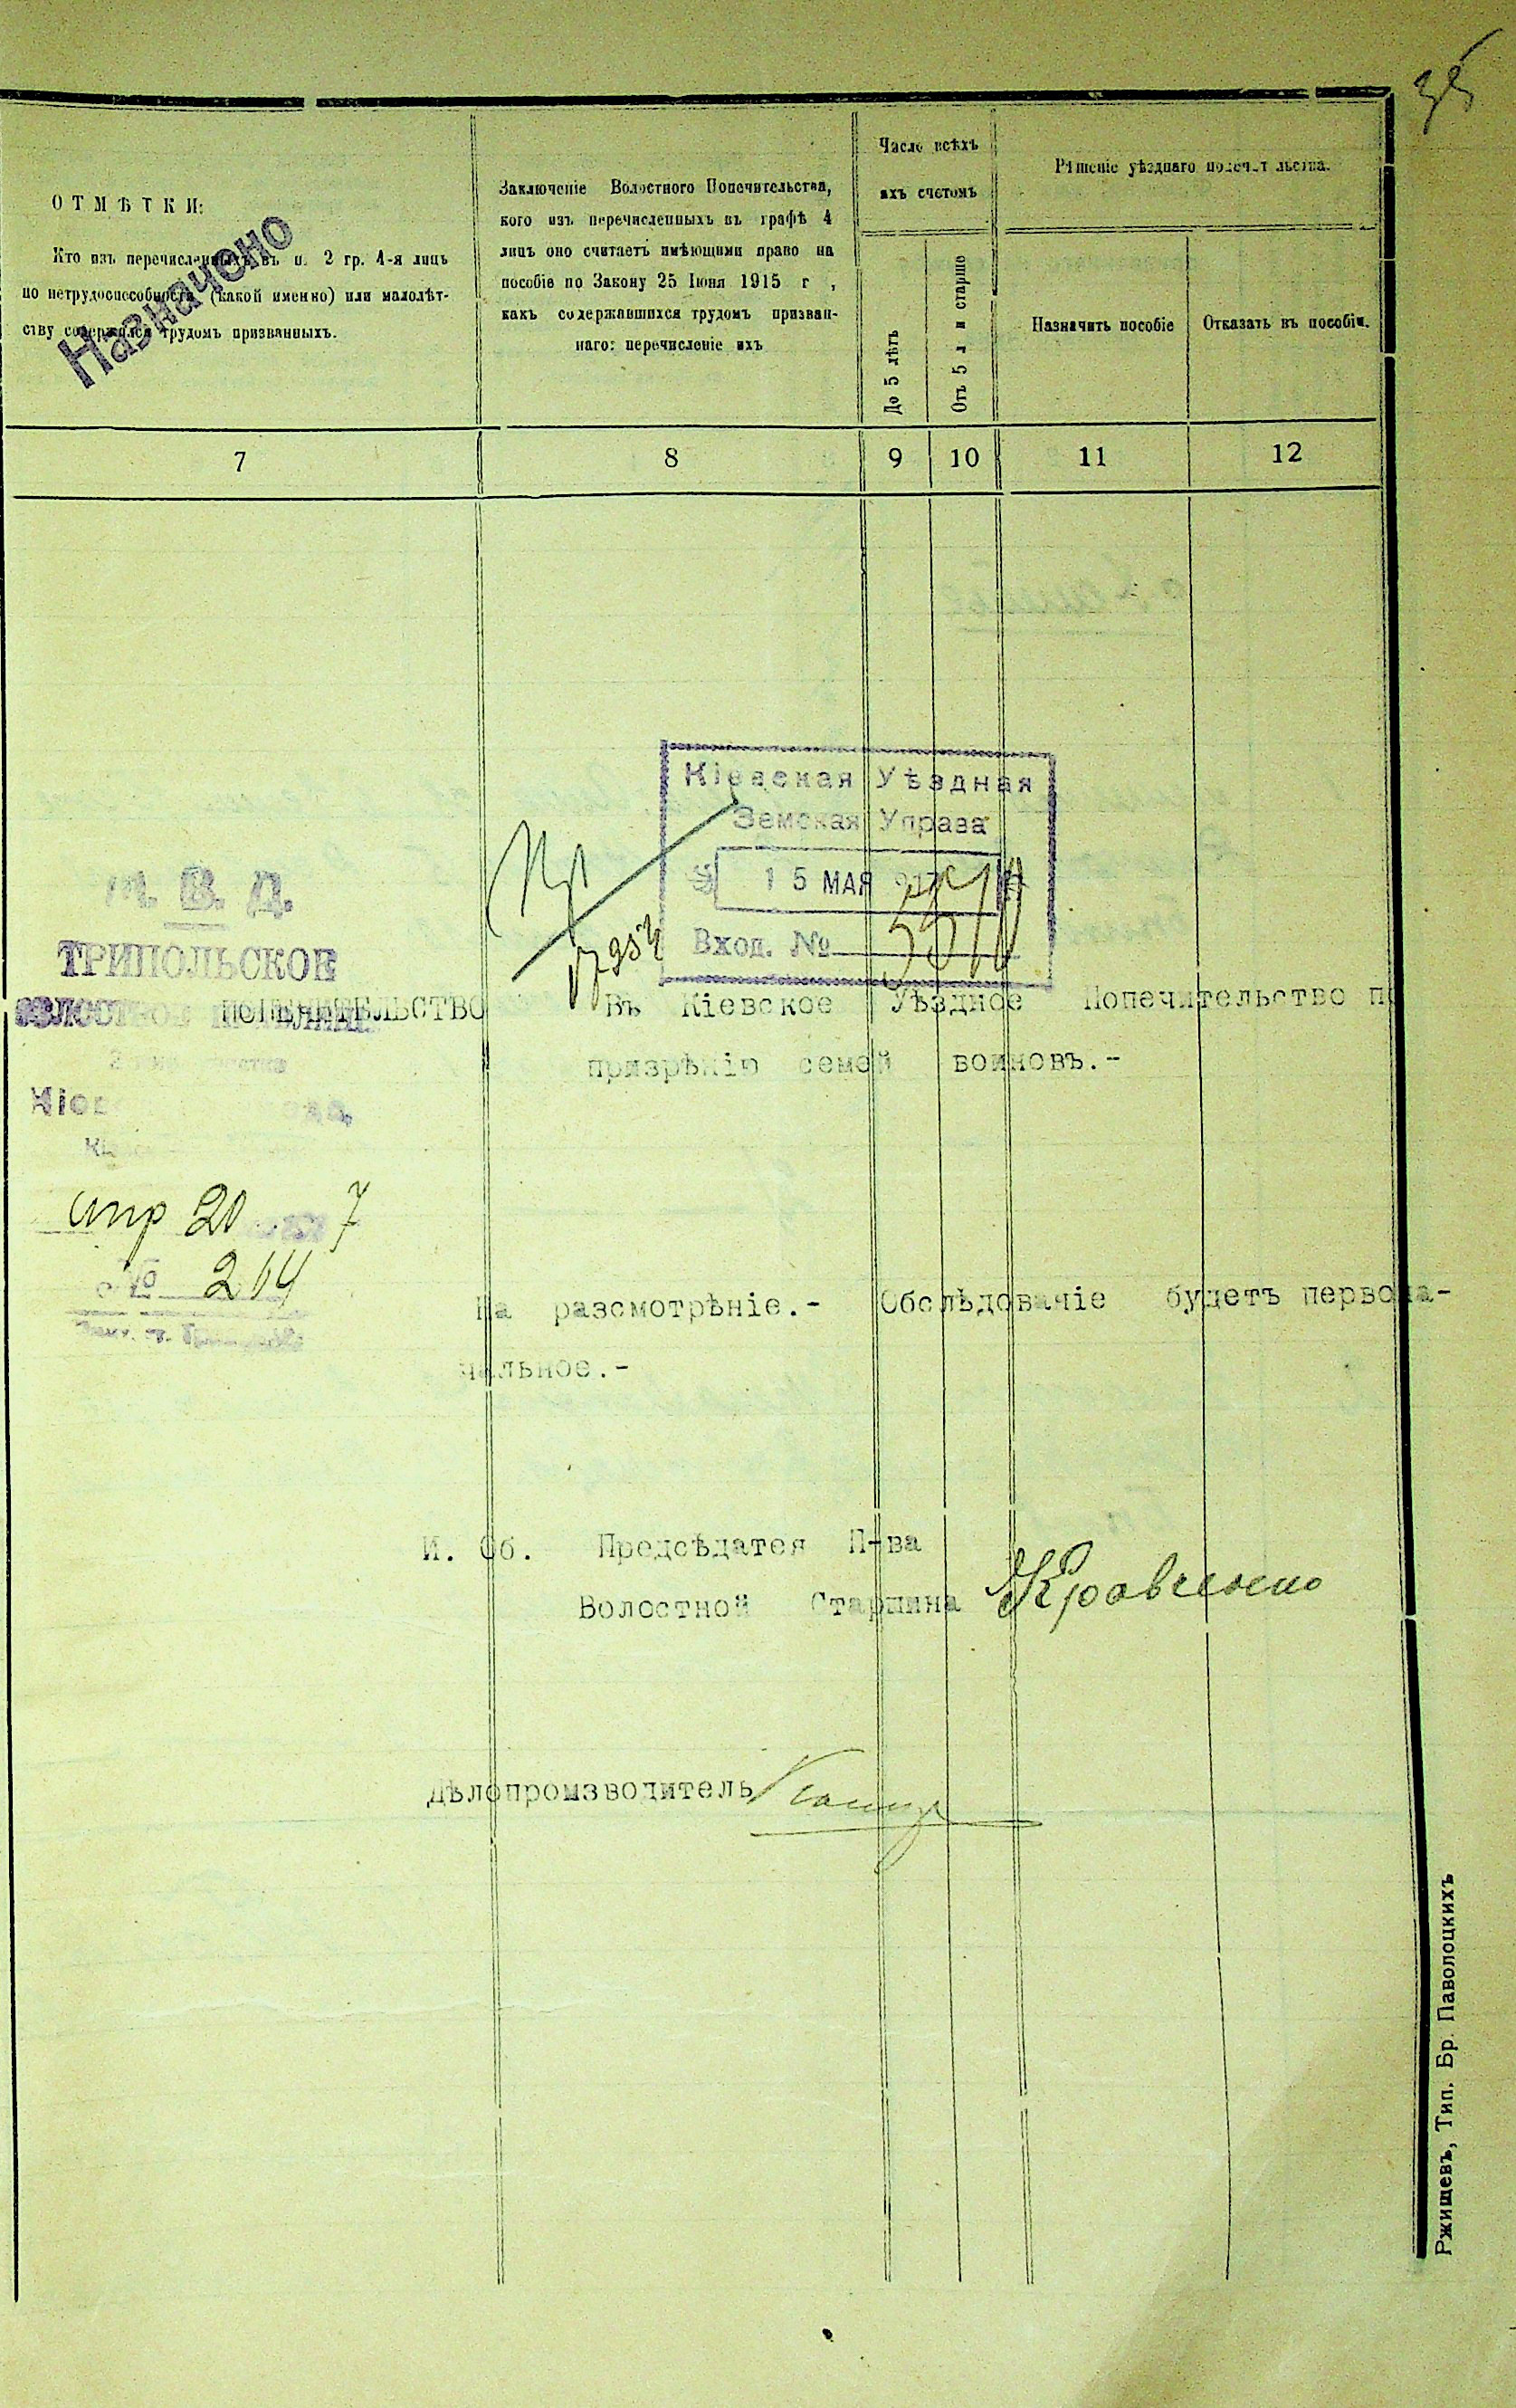 35
ОТМѢТКИ:
Кто изъ перечисленныхъ въ п. 2 гр. 4-я лицъ
по нетрудоспособности (какой именно) или малолѣт-
ству содержался трудомъ призванныхъ.
Назначено
Заключеніе Волостного Попечительства,
кого изъ перечисленныхъ въ графѣ 4
лицъ оно считаетъ имѣющими право на
пособіе по Закону 25 Іюня 1915 г ,
какъ содержавшихся трудомъ призван-
наго: перечисленіе ихъ
Число всѣхъ
ихъ счетомъ
До 5 лѣтъ
Отъ 5 л и старше
Рѣшеніе уѣзднаго попечительства.
Назначить пособіе
Отказать въ пособіи.
7 8 9 10 11 12
Кіевская Уѣздная
Земская Управа
15 МАЯ 917
Вход. №
М. В. Д.
ТРИПОЛЬСКОЕ
ПОПЕЧИТЕЛЬСТВО
апр 20 7
№ 264
Въ Кіевское Уѣздное Попечительство по
призрѣнію семей воиновъ.-
На разсмотрѣніе.- Обслѣдованіе будетъ первона-
чальное.-
И. Об. Предсѣдатея П-ва
Волостной Старшина Кравченко
Дѣлопроизводитель
Ржищевъ, Тип. Бр. Паволоцкихъ